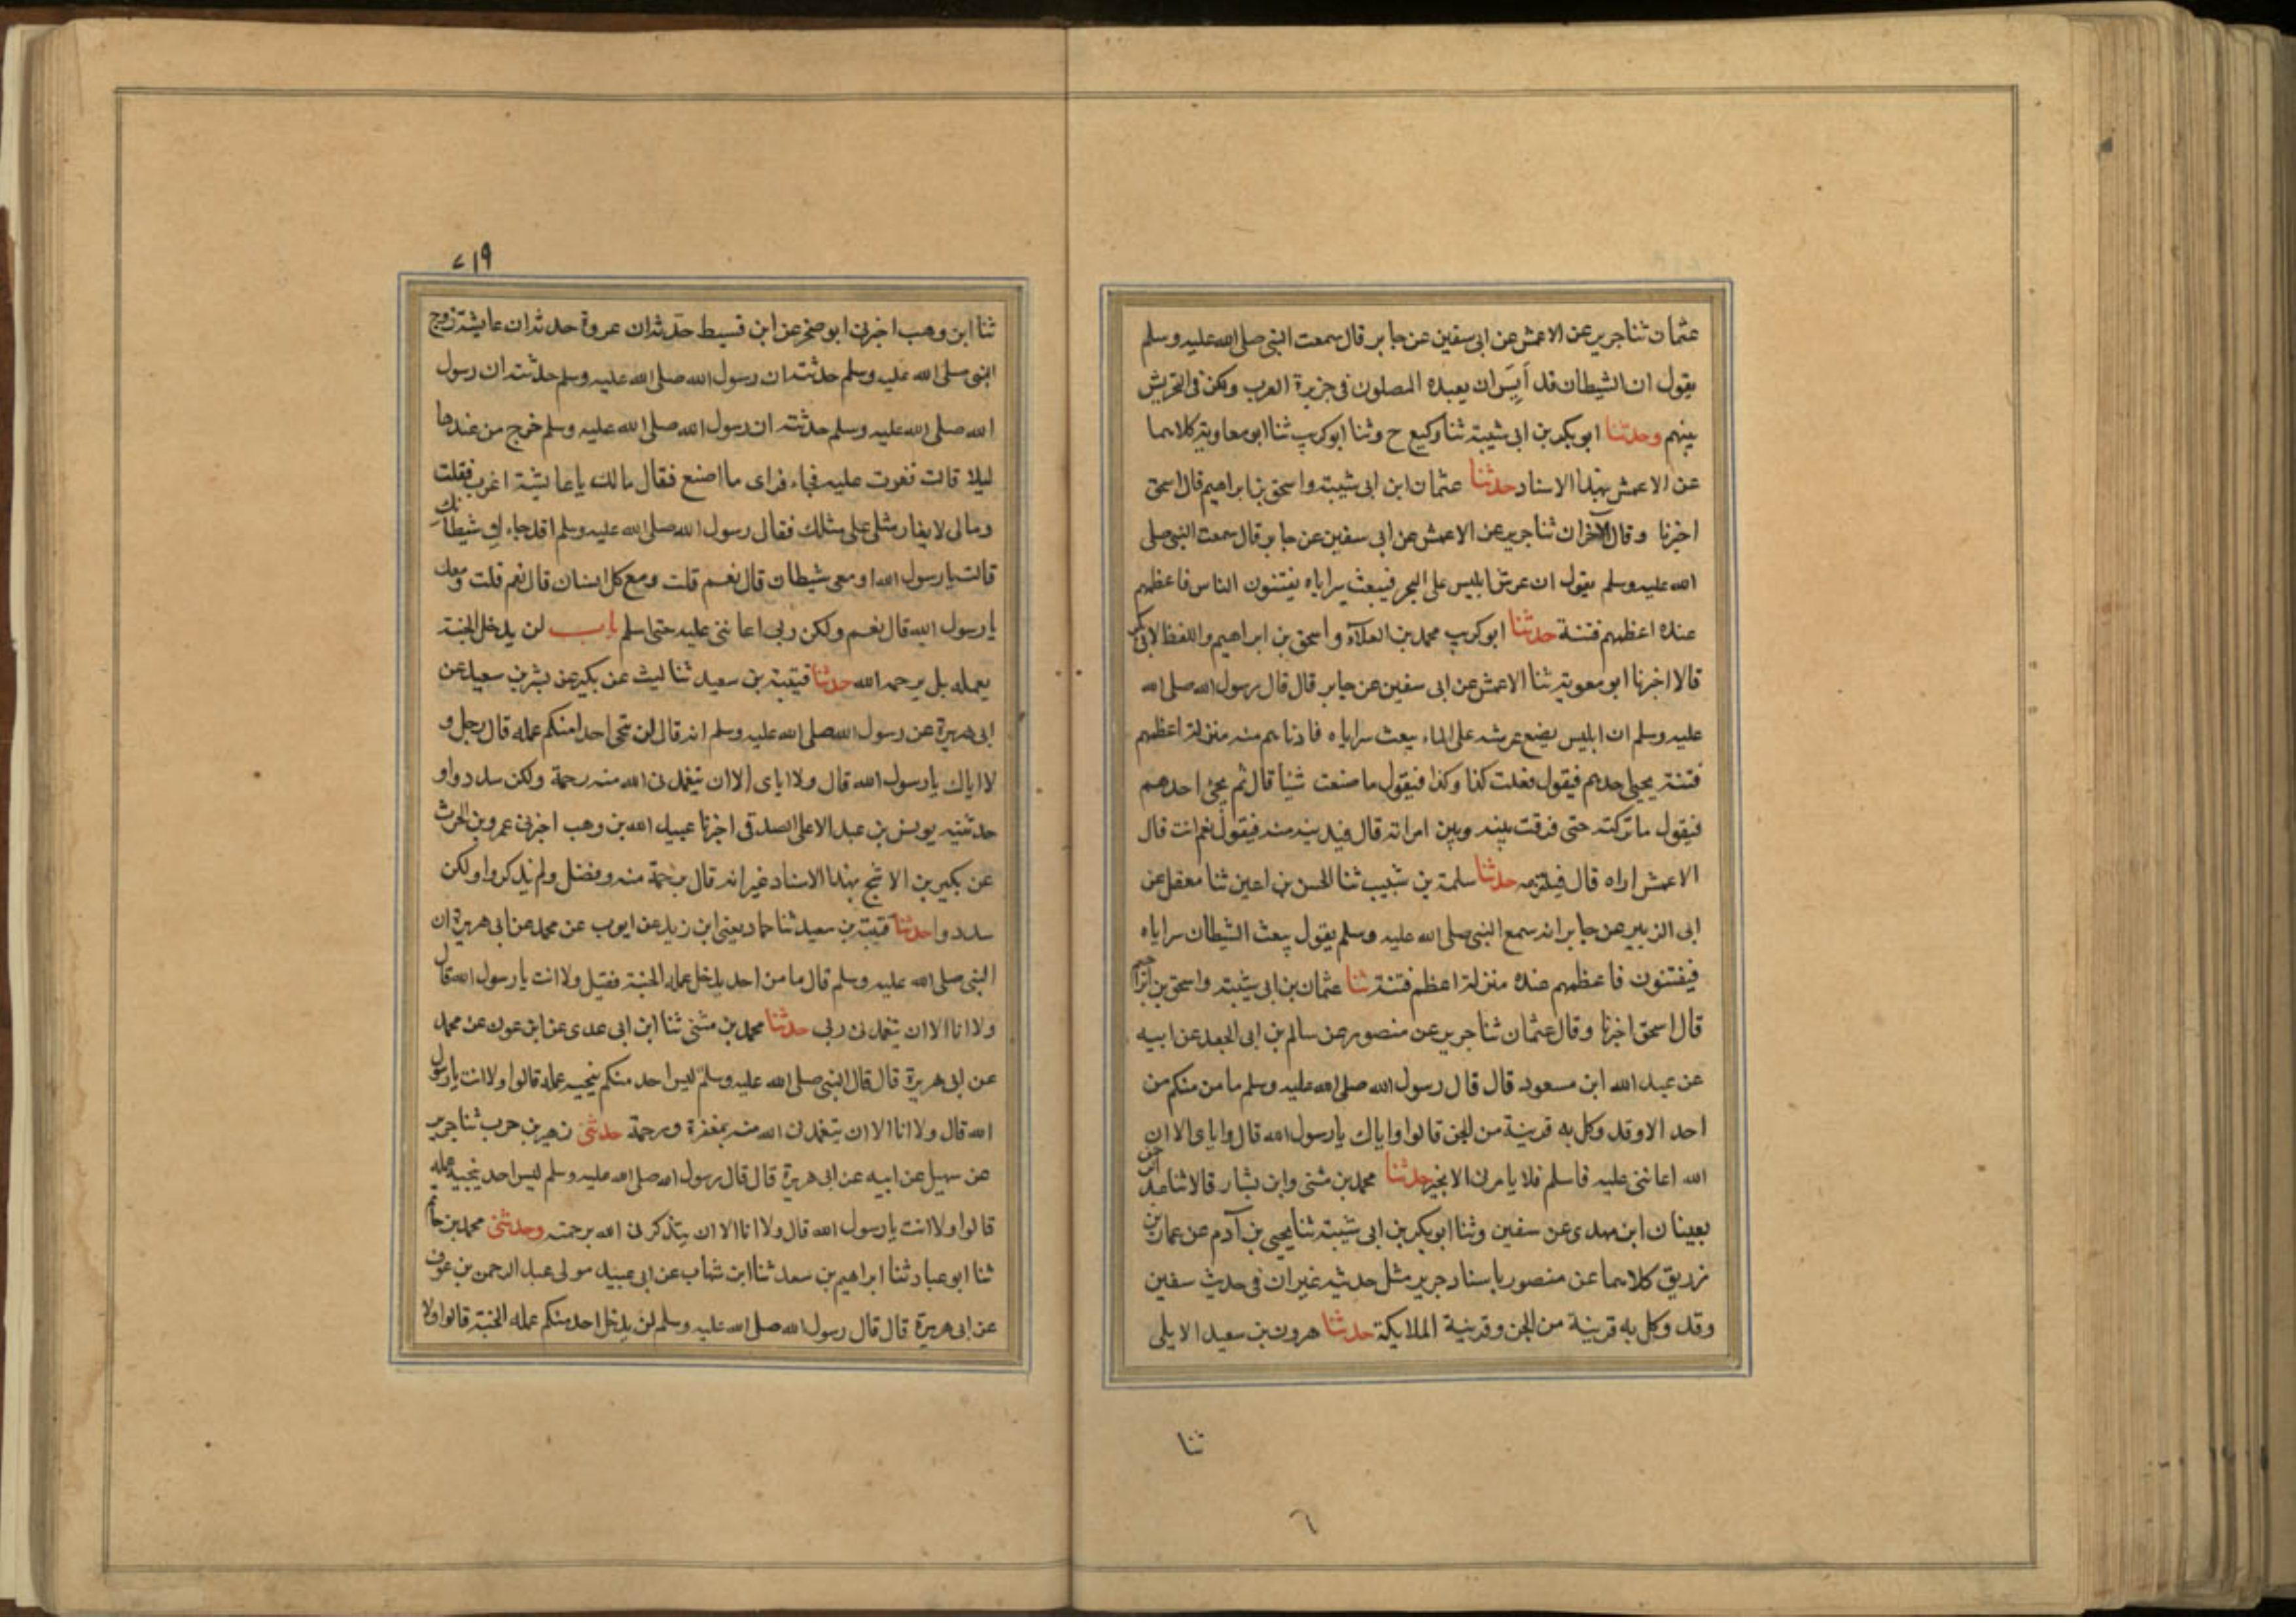 عثمان ثنا جرير عن الاعمش عن ابى سفين عن جابر قال سمعت النبى صلى الله عليه وسلم
يقول ان الشيطان قد أَيِسَ ان يعبده المصلون فى جزيرة العرب ولكن فى التحريش
بينهم وحدثنا ابو بكر بن ابى شيبة ثنا وكيع ح وثنا ابو كريب ثنا ابو معاوية كلاهما
عن الاعمش بهذا الاسناد حدثنا عثمان ابن ابى شيبة واسحق بن ابراهيم قال اسحق
اخبرنا وقال الآخران ثنا جرير عن الاعمش عن ابى سفين عن جابر قال سمعت النبى صلى
الله عليه وسلم يقول ان عرش ابليس على البحر فيبعث سراياه يفتنون الناس فاعظمهم
عنده اعظمهم فتنة حدثنا ابو كريب محمد بن العلآء واسحق بن ابراهيم واللفظ لابى كريب
قالا اخبرنا ابو معوية ثنا الاعمش عن ابى سفين عن جابر قال قال رسول الله صلى الله
عليه وسلم ان ابليس يضع عرشه على الماء يبعث سراياه فادناهم منه منزلة اعظمهم
فتنة يجئ احدهم فيقول فعلت كذا وكذا فيقول ما صنعت شيئا قال ثم يجئ احدهم
فيقول ما تركته حتى فرقت بينه وبين امراته قال فيدنيه منه فيقول نعم انت قال
الاعمش اراه قال فيلتزمه حدثنا سلمة بن شبيب ثنا الحسن بن اعين ثنا معقل عن
ابى الزبير عن جابر انه سمع النبى صلى الله عليه وسلم يقول يبعث الشيطان سراياه
فيفتنون فاعظمهم عنده منزلة اعظم فتنة ثنا عثمان بن ابى شيبة واسحق بن ابراهيم
قال اسحق اخبرنا وقال عثمان ثنا جرير عن منصور عن سالم بن ابى الجعد عن ابيه
عن عبد الله ابن مسعود قال قال رسول الله صلى الله عليه وسلم ما من منكم من
احد الا وقد وكل به قرينة من الجن قالوا واياك يا رسول الله قال واياى الا ان
الله اعاننى عليه فاسلم فلا يامرنى الا بخير حدثنا محمد بن مثنى وابن بشار قالا ثنا عبد الرحمن
يعنيان ابن مهدى عن سفين وثنا ابو بكر بن ابى شيبة ثنا يحيى بن آدم عن عمار بن
زريق كلاهما عن منصور باسناد جرير مثل حديثه غير ان فى حديث سفين
وقد وكل به قرينة من الجن وقرينة الملايكة حدثنا هرون بن سعيد الايلى
ثنا
٦
٧١٩
ثنا ابن وهب اخبرنى ابو صخر عن ابن قسيط حدّثه ان عروة حدثه ان عايشة زوج
النبى صلى الله عليه وسلم حدثته ان رسول الله صلى الله عليه وسلم حدثته ان رسول
الله صلى الله عليه وسلم حدثته ان رسول الله صلى الله عليه وسلم خرج من عندها
ليلا قالت فغرت عليه فجاء فراى ما اصنع فقال مالك يا عايشة اغرت فقلت
ومالى لا يغار مثلى على مثلك فقال رسول الله صلى الله عليه وسلم اقد جاءك شيطانك
قالت يا رسول الله او معى شيطان قال نعم قلت ومع كل انسان قال نعم قلت ومعك
يا رسول الله قال نعم ولكن ربى اعاننى عليه حتى اسلم باب لن يدخل الجنة
بعمله بل برحمة الله حدثنا قتيبة بن سعيد ثنا ليث عن بكير عن بشر بن سعيد عن
ابى هريرة عن رسول الله صلى الله عليه وسلم انه قال لن ينجى احدا منكم عمله قال رجل و
لا اياك يا رسول الله قال ولا اياى الا ان يتغمدنى الله منه رحمة ولكن سددوا و
حدثنيه يونس بن عبد الاعلى الصدقى اخبرنا عبيد الله بن وهب اخبرنى عمرو بن الحرث
عن بكير بن الاشج بهذا الاسناد غير انه قال برحمة منه وفضل ولم يذكروا ولكن
سددوا حدثنا قتيبة بن سعيد ثنا حماد يعنى ابن زيد عن ايوب عن محمد عن ابى هريرة ان
النبى صلى الله عليه وسلم قال ما من احد يدخل عمله الجنة فقيل ولا انت يا رسول الله قال
ولا انا الا ان يتغمدنى ربى حدثنا محمد بن مثنى ثنا ابن ابى عدى عن ابن عون عن محمد
عن ابى هريرة قال قال النبى صلى الله عليه وسلم ليس احد منكم ينجيه عمله قالوا ولا انت يا رسول
الله قال ولا انا الا ان يتغمدنى الله منه بمغفرة ورحمة حدثنى زهير بن حرب ثنا جرير
عن سهيل عن ابيه عن ابى هريرة قال قال رسول الله صلى الله عليه وسلم ليس احد ينجيه عمله
قالوا ولا انت يا رسول الله قال ولا انا الا ان يتذكرنى الله برحمته وحدثنى محمد بن حاتم
ثنا ابو عباد ثنا ابراهيم بن سعد ثنا ابن شهاب عن ابى عبيد مولى عبد الرحمن بن عوف
عن ابى هريرة قال قال رسول الله صلى الله عليه وسلم لن يدخل احد منكم عمله الجنة قالوا ولا